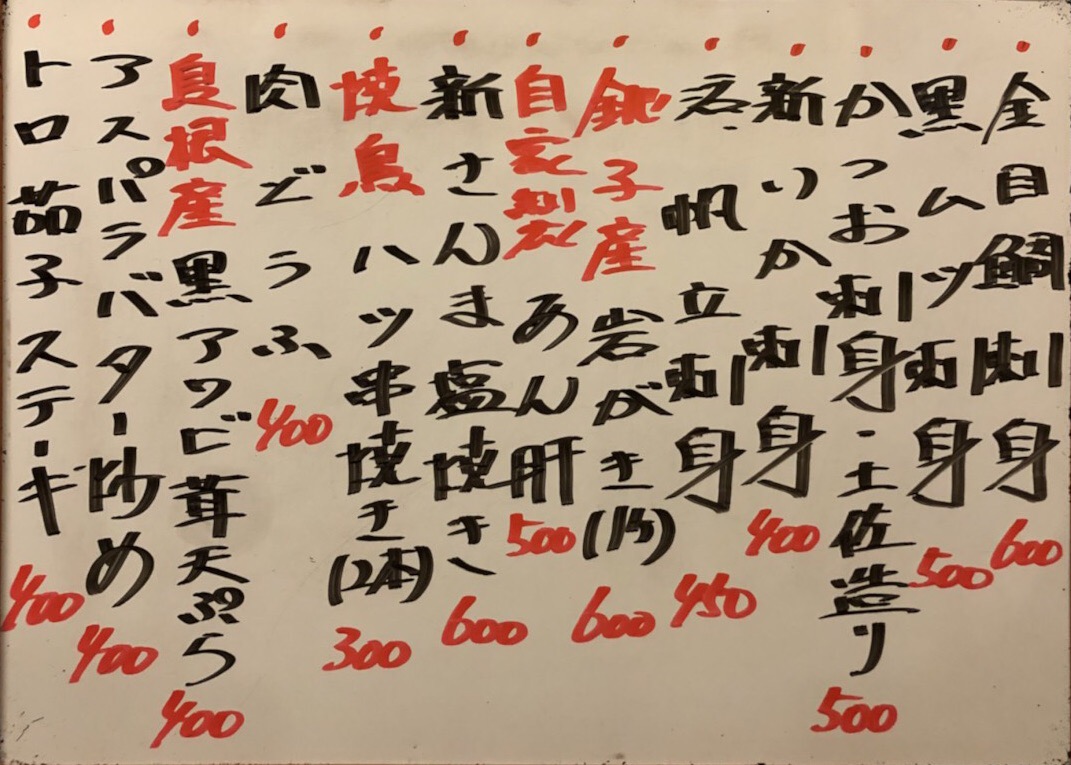 金目鯛刺身 600
黒ムツ刺身 500
かつお刺身・土佐造り 500
新いか刺身 400
活帆立刺身 450
銚子産 岩がき(1ケ) 600
自家製 あん肝 500
新さんま塩焼き 600
焼鳥 ハツ串焼き(2本) 300
肉どうふ 400
島根産 黒アワビ茸天ぷら 400
アスパラバター炒め 400
トロ茄子ステーキ 400